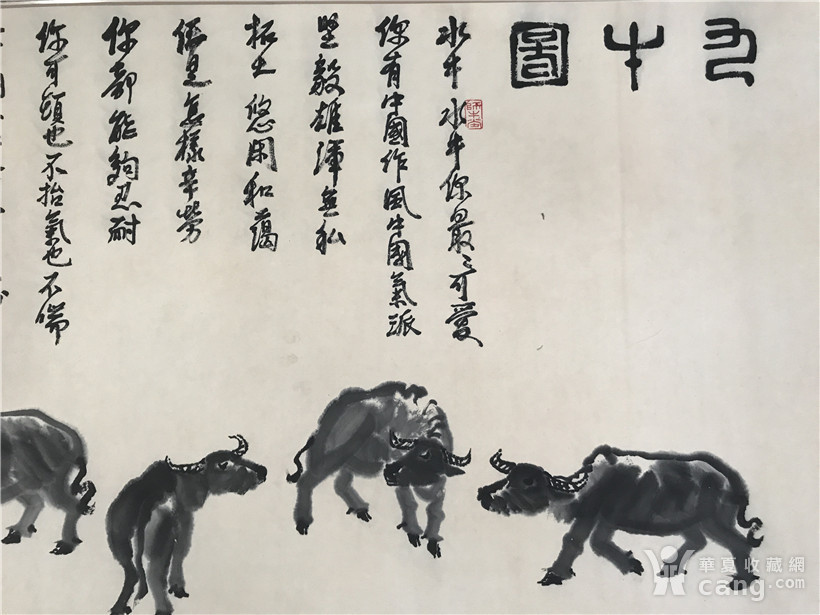 九牛圖
水牛水牛你最〻可愛
師牛堂
你有中國作風中國氣派
堅毅雄渾無私
拓大悠閑和藹
任是怎樣辛勞
你都能夠忍耐
你可頭也不抬氣也不喘
華夏收藏網
cang.com